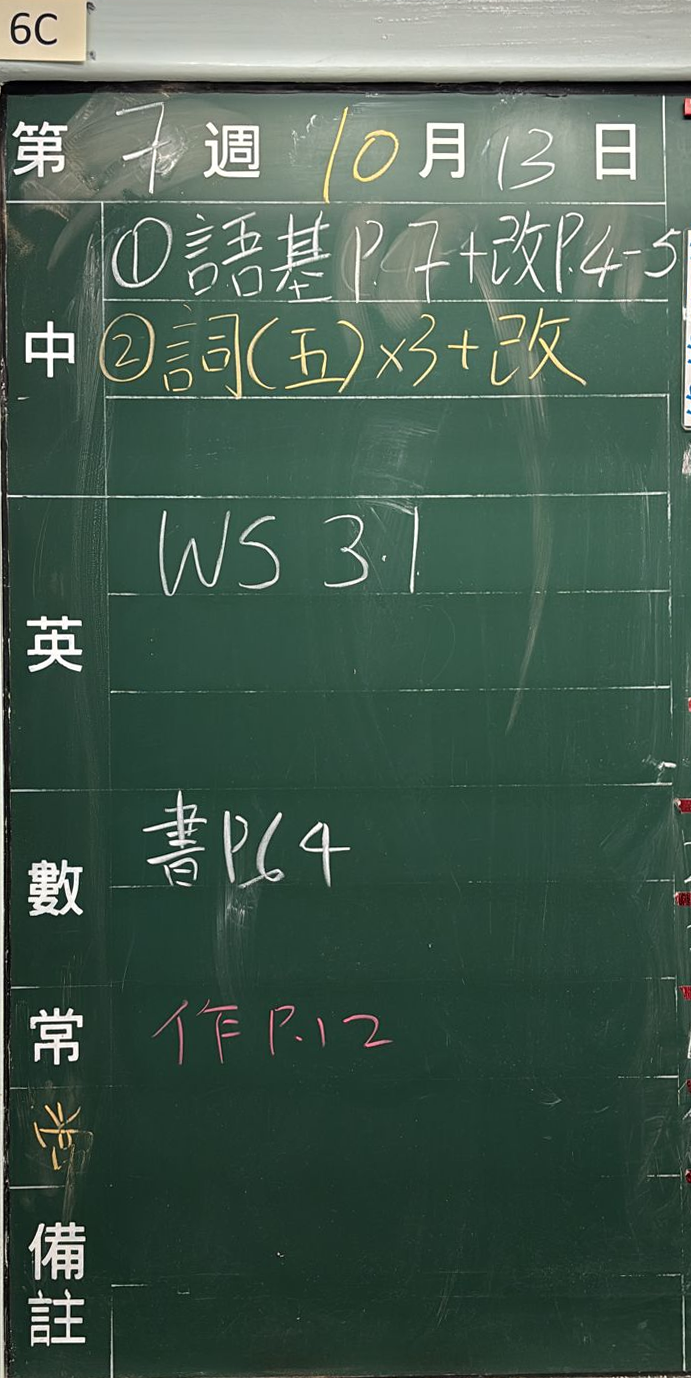 6C
第 7 週 10 月 13 日
中
①語基 P.7+改P.4-5
②詞(五)×3+改
英
WS 3.1
數
書P.64
常
作 P.12
備註